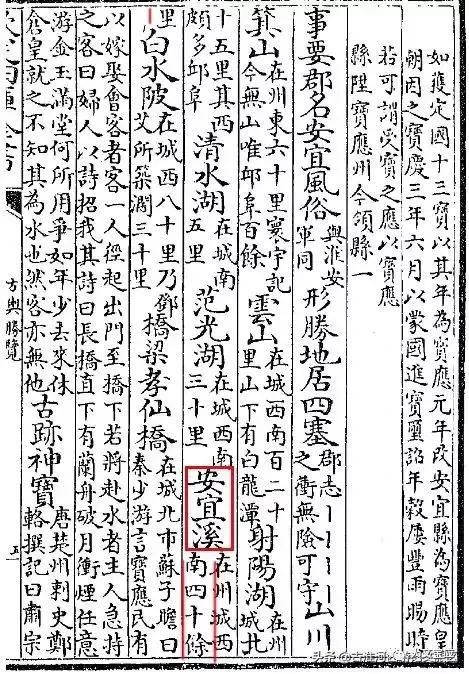 如獲定國十三寶以其年為寶應元年改安宜縣為寶應皇
朝因之寶慶三年六月以蒙國進寶璽詔年穀屢豐雨暘時
若可謂受寶之應以寶應
縣陞寶應州今領縣一
事要郡名安宜風俗與淮安軍同形勝地居四塞郡志丨丨丨丨之衝無險可守山川
箕山在州東六十里寰宇記今無山唯邱阜百餘雲山在城西南百二十里山下有白龍潭射陽湖在州城北
十五里其西頗多邱阜清水湖在城南五里范光湖在城西南三十里安宜溪在州城西南四十餘
里白水陂在城西八十里乃鄧艾所築濶三十里橋梁孝仙橋在城北市蘇子瞻曰秦少游言寶應民有
以嫁娶會客者客一人徑起出門至橋下若將赴水者主人急持
之客曰婦人以詩招我其詩曰長橋直下有蘭舟破月衝煙任意
游金玉滿堂何所用爭如年少去來休
倉皇就之不知其為水也然客亦無他古跡神寶唐楚州刺史鄭輅撰記曰肅宗
方輿勝覽
五